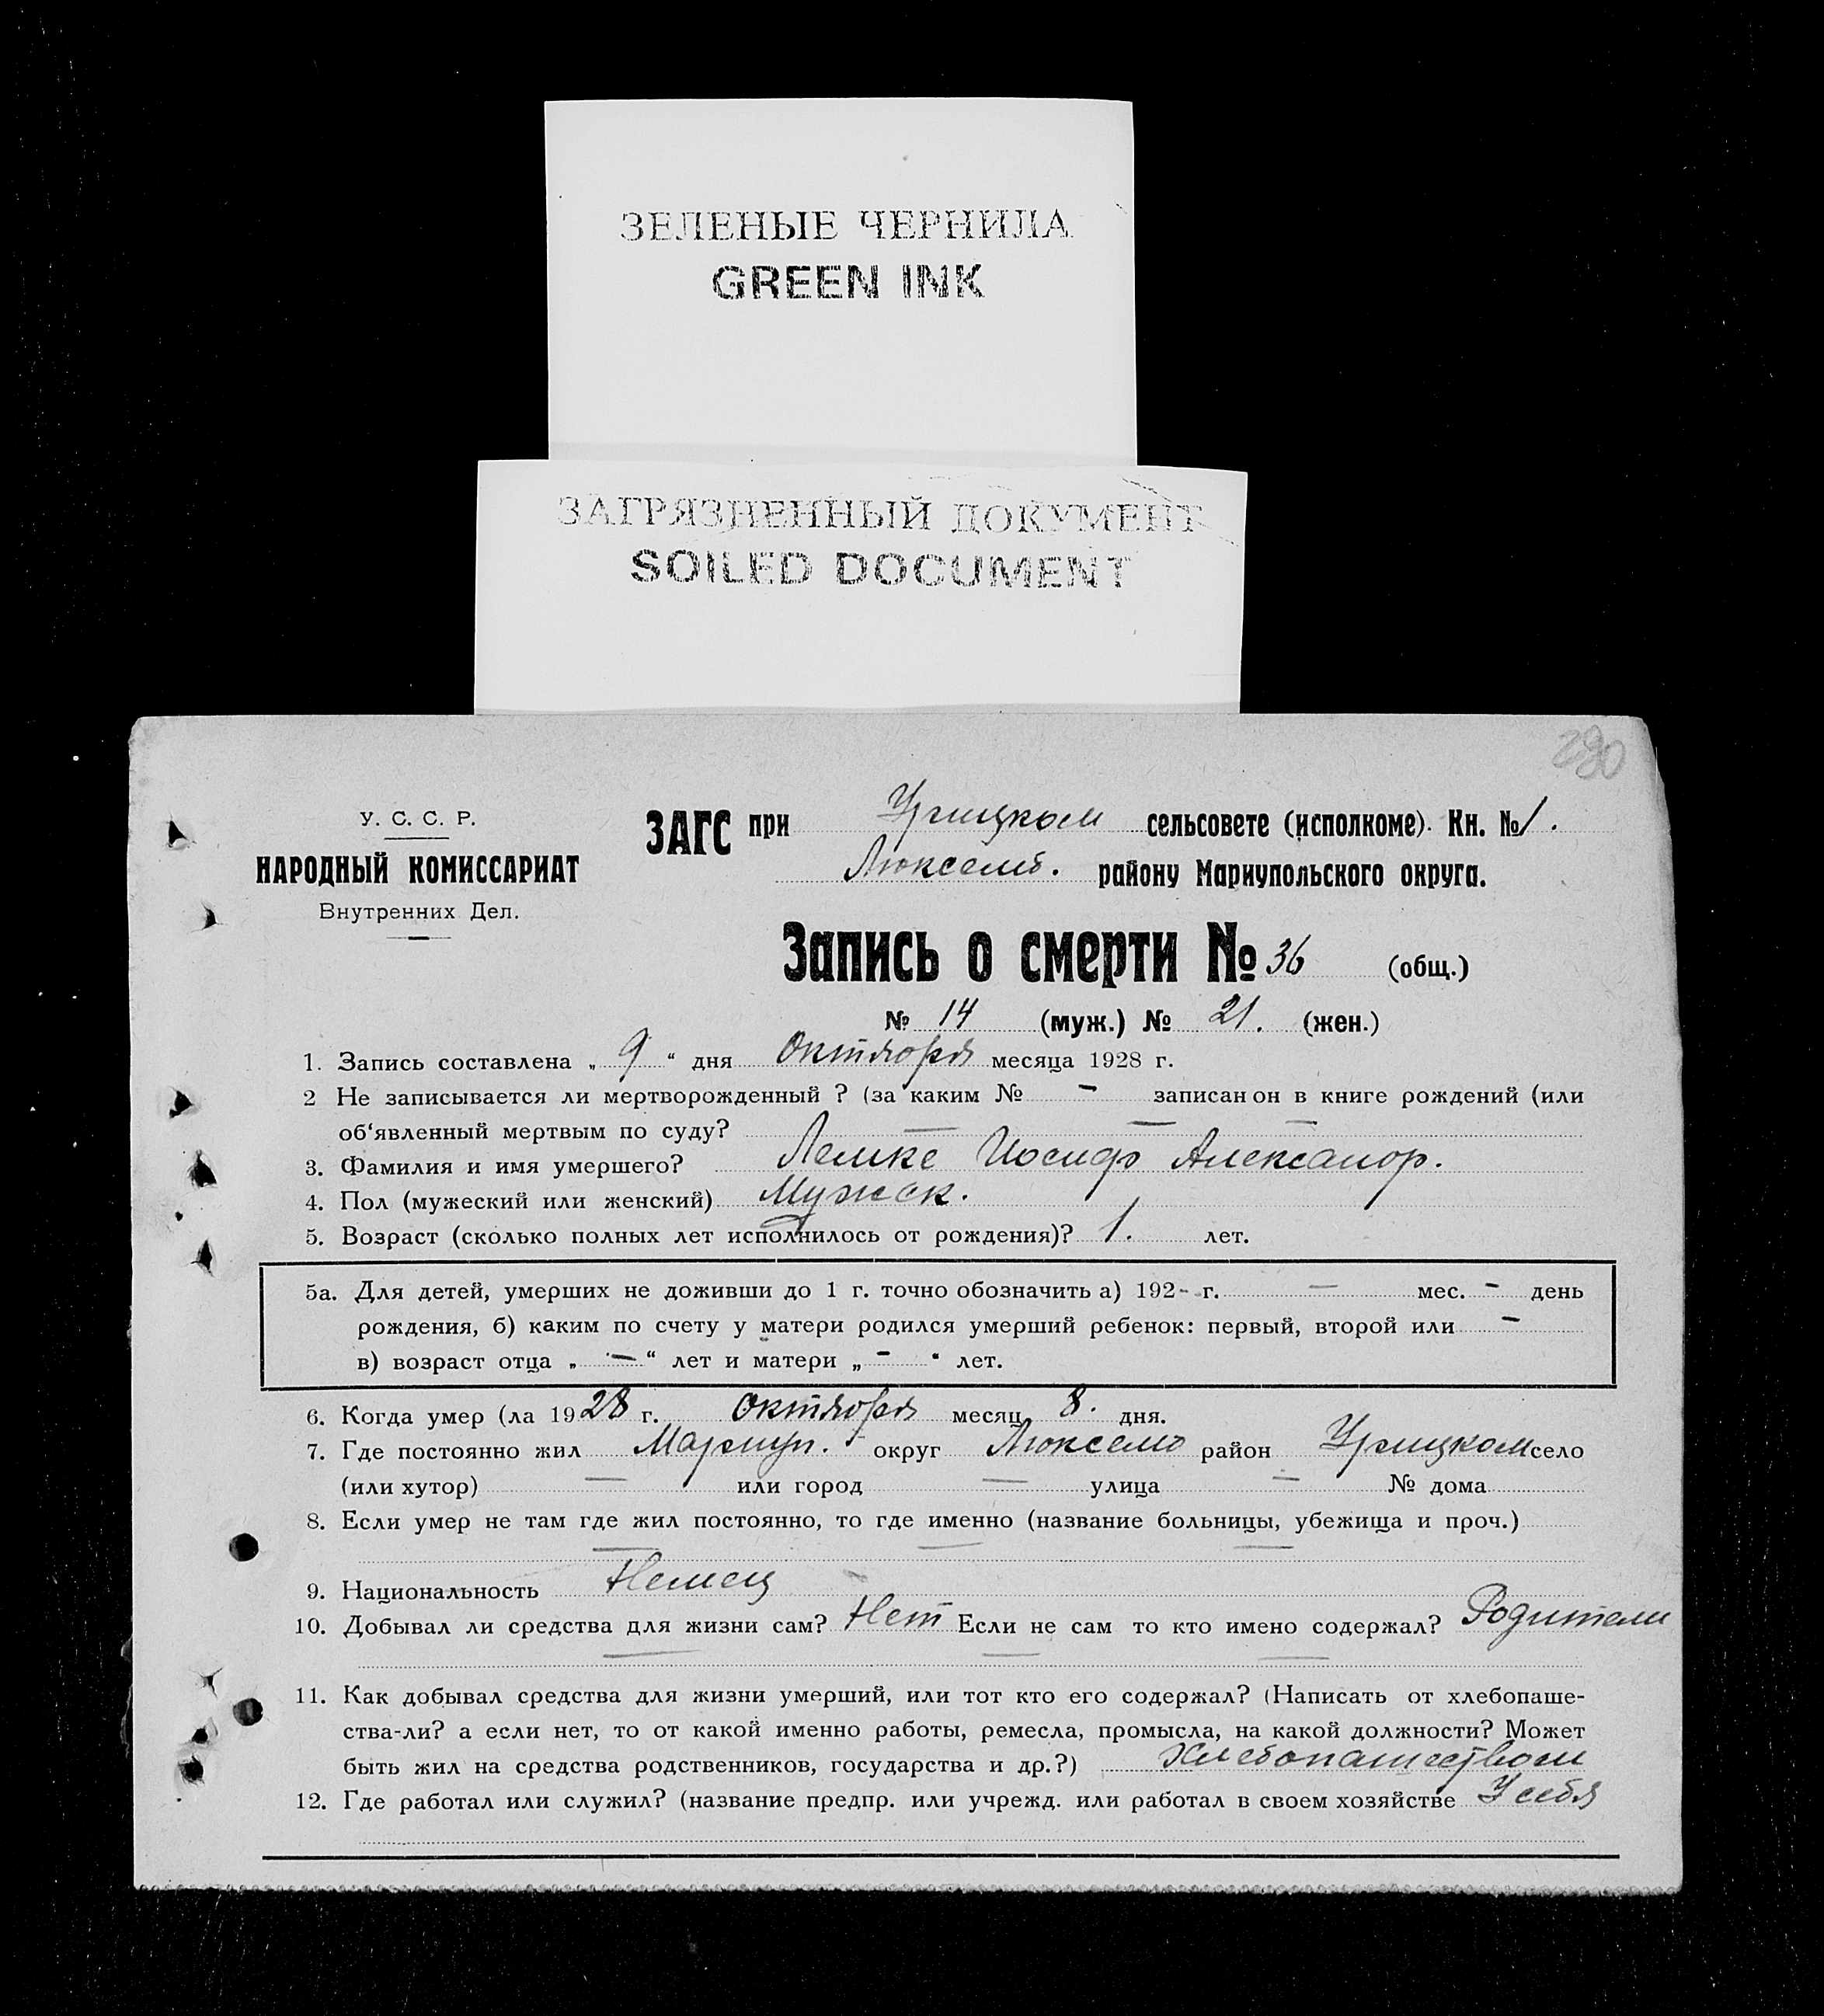 ЗЕЛЕНЫЕ ЧЕРНИЛА
GREEN INK
ЗАГРЯЗНЕННЫЙ ДОКУМЕНТ
SOILED DOCUMENT
290
У. С. С. Р.
НАРОДНЫЙ КОМИССАРИАТ
Внутренних Дел.
ЗАГС при Урицком сельсовете (исполкоме). Кн. № 1.
Люксемб. району Мариупольского округа.
Запись о смерти № 36 (общ.)
№ 14 (муж.) № 21. (жен.)
1. Запись составлена „ 9 “ дня Октября месяца 1928 г.
2 Не записывается ли мертворожденный ? (за каким № – записан он в книге рождений (или
об‘явленный мертвым по суду? — — —
3. Фамилия и имя умершего? Лемке Иосиф Александр.
4. Пол (мужеский или женский) Мужск.
5. Возраст (сколько полных лет исполнилось от рождения)? 1. лет.
5а. Для детей, умерших не доживши до 1 г. точно обозначить а) 192- г. — мес. - день
рождения, б) каким по счету у матери родился умерший ребенок: первый, второй или –
в) возраст отца „ — “ лет и матери „ - “ лет.
6. Когда умер (ла 1928 г. Октября месяц 8. дня.
7. Где постоянно жил Мариуп. округ Люксемб район Урицком село
(или хутор) — или город — улица — № дома
8. Если умер не там где жил постоянно, то где именно (название больницы, убежища и проч.)
— — —
9. Национальность Немец
10. Добывал ли средства для жизни сам? Нет Если не сам то кто имено содержал? Родители
— — —
11. Как добывал средства для жизни умерший, или тот кто его содержал? (Написать от хлебопаше-
ства-ли? а если нет, то от какой именно работы, ремесла, промысла, на какой должности? Может
быть жил на средства родственников, государства и др.?) Хлебопашеством
12. Где работал или служил? (название предпр. или учрежд. или работал в своем хозяйстве У себя